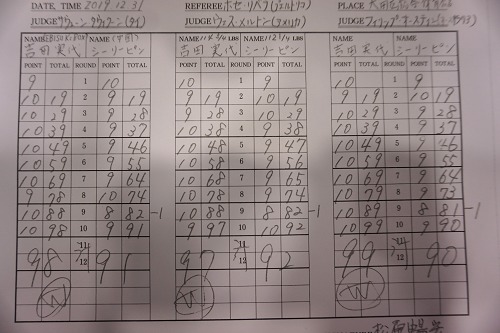 DATE, TIME 2019.12.31 REFEREE ホセ・リベラ(プエルトリコ) PLACE 大田区総合体育館
JUDGE (タイ) JUDGE (アメリカ) JUDGE
NAME 吉田実代 NAME (中国) シーリーピン NAME 114 3/4 LBS 吉田実代 NAME 112 1/4 LBS シーリーピン NAME 吉田実代 NAME シーリーピン
POINT TOTAL ROUND POINT TOTAL POINT TOTAL ROUND POINT TOTAL POINT TOTAL ROUND POINT TOTAL
9 1 10 10 1 9 10 1 9
10 19 2 9 19 9 19 2 10 19 9 19 2 10 19
10 29 3 9 28 9 28 3 10 29 10 29 3 9 28
10 39 4 9 37 10 38 4 9 38 10 39 4 9 37
10 49 5 9 46 10 48 5 9 47 10 49 5 9 46
10 59 6 9 55 10 58 6 9 56 10 59 6 9 55
10 69 7 9 64 10 68 7 9 65 10 69 7 9 64
9 78 8 10 74 10 78 8 9 74 10 79 8 9 73
10 88 9 8 82 -1 10 88 9 8 82 -1 10 89 9 8 81 -1
10 98 10 9 91 9 97 10 10 92 10 99 10 9 90
98 11 91 97 11 92 99 11 90
12 12 12
W W W